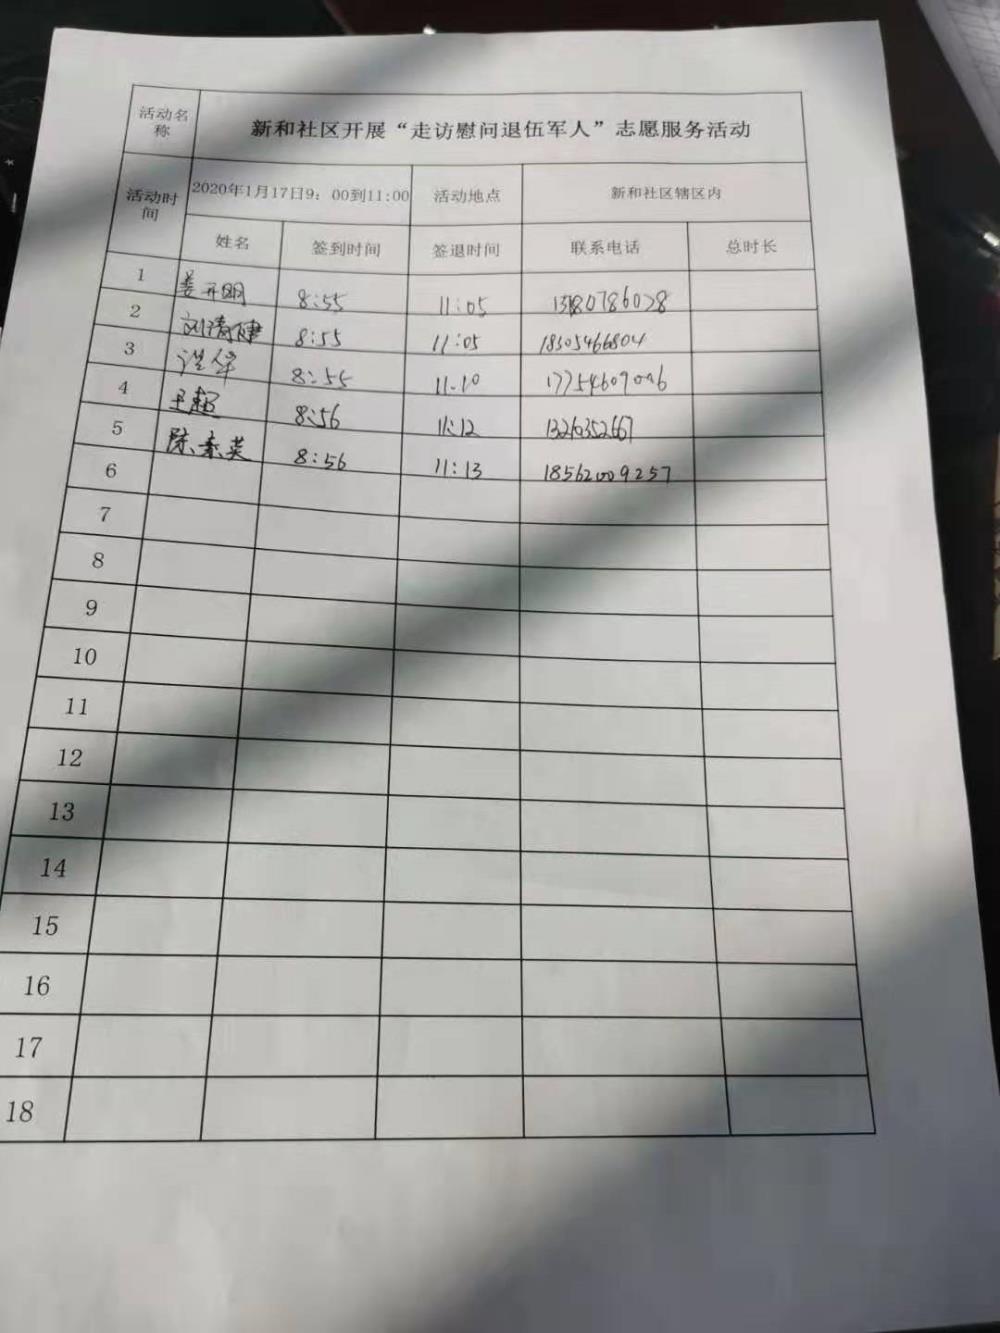 活动名称 新和社区开展“走访慰问退伍军人”志愿服务活动
活动时间 2020年1月17日9：00到11:00 活动地点 新和社区辖区内
姓名 签到时间 签退时间 联系电话 总时长
1 姜开明 8:55 11:05
2 刘清健 8:55 11:05 18305466804
3 8:55 11.10
4 王超 8:56 11:12
5 陈素英 8:56 11:13 18562009257
6
7
8
9
10
11
12
13
14
15
16
17
18